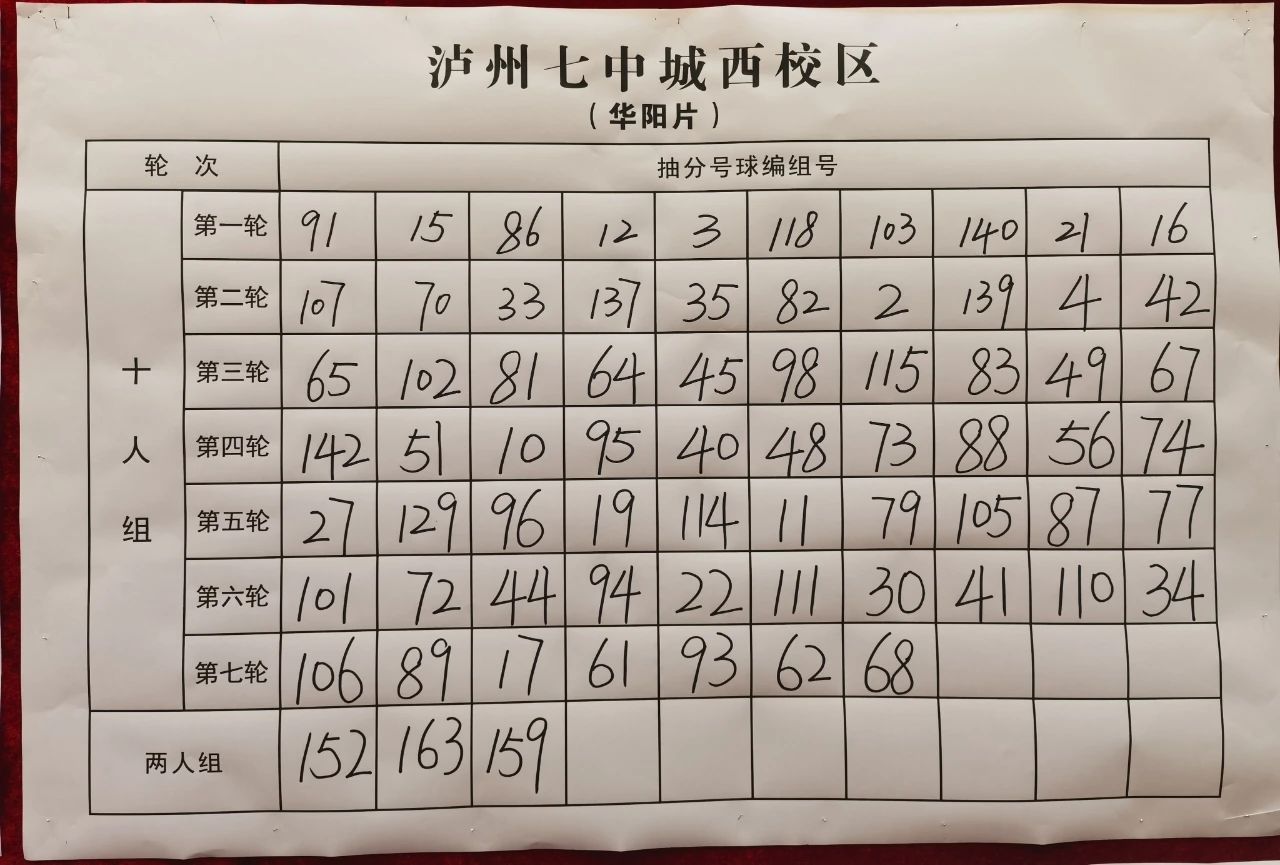 泸州七中城西校区
（华阳片）
轮 次 抽分号球编组号
十人组
第一轮 91 15 86 12 3 118 103 140 21 16
第二轮 107 70 33 137 35 82 2 139 4 42
第三轮 65 102 81 64 45 98 115 83 49 67
第四轮 142 51 10 95 40 48 73 88 56 74
第五轮 27 129 96 19 114 11 79 105 87 77
第六轮 101 72 44 94 22 111 30 41 110 34
第七轮 106 89 17 61 93 62 68
两人组 152 163 159